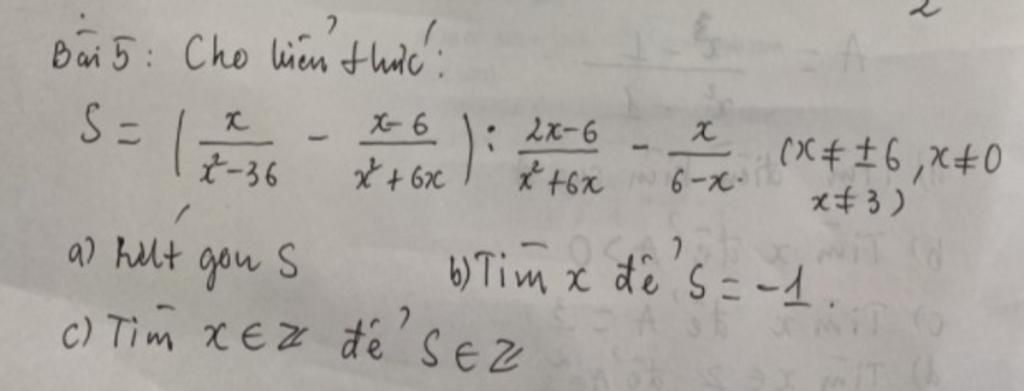 Bài 5: Cho biển thức:
S = ( x/(x²-36) - (x-6)/(x²+6x) ) : (2x-6)/(x²+6x) - x/(6-x) (x ≠ ±6, x ≠ 0
x ≠ 3)
a) Rút gọn S b) Tìm x để S = -1.
c) Tìm x ∈ Z để S ∈ Z